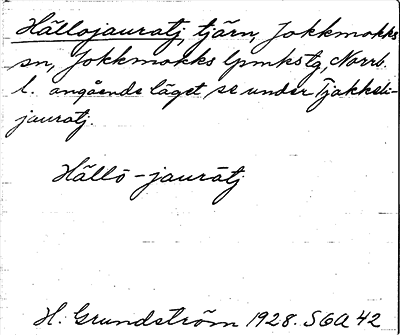 Hållojauratj, tjärn, Jokkmokks
sn, Jokkmokks lpmkstg, Norrb.
l. angående läget, se under Tjakkeli-
jauratj.
Hållō-jaurātj
H. Grundström 1928. SGA 42